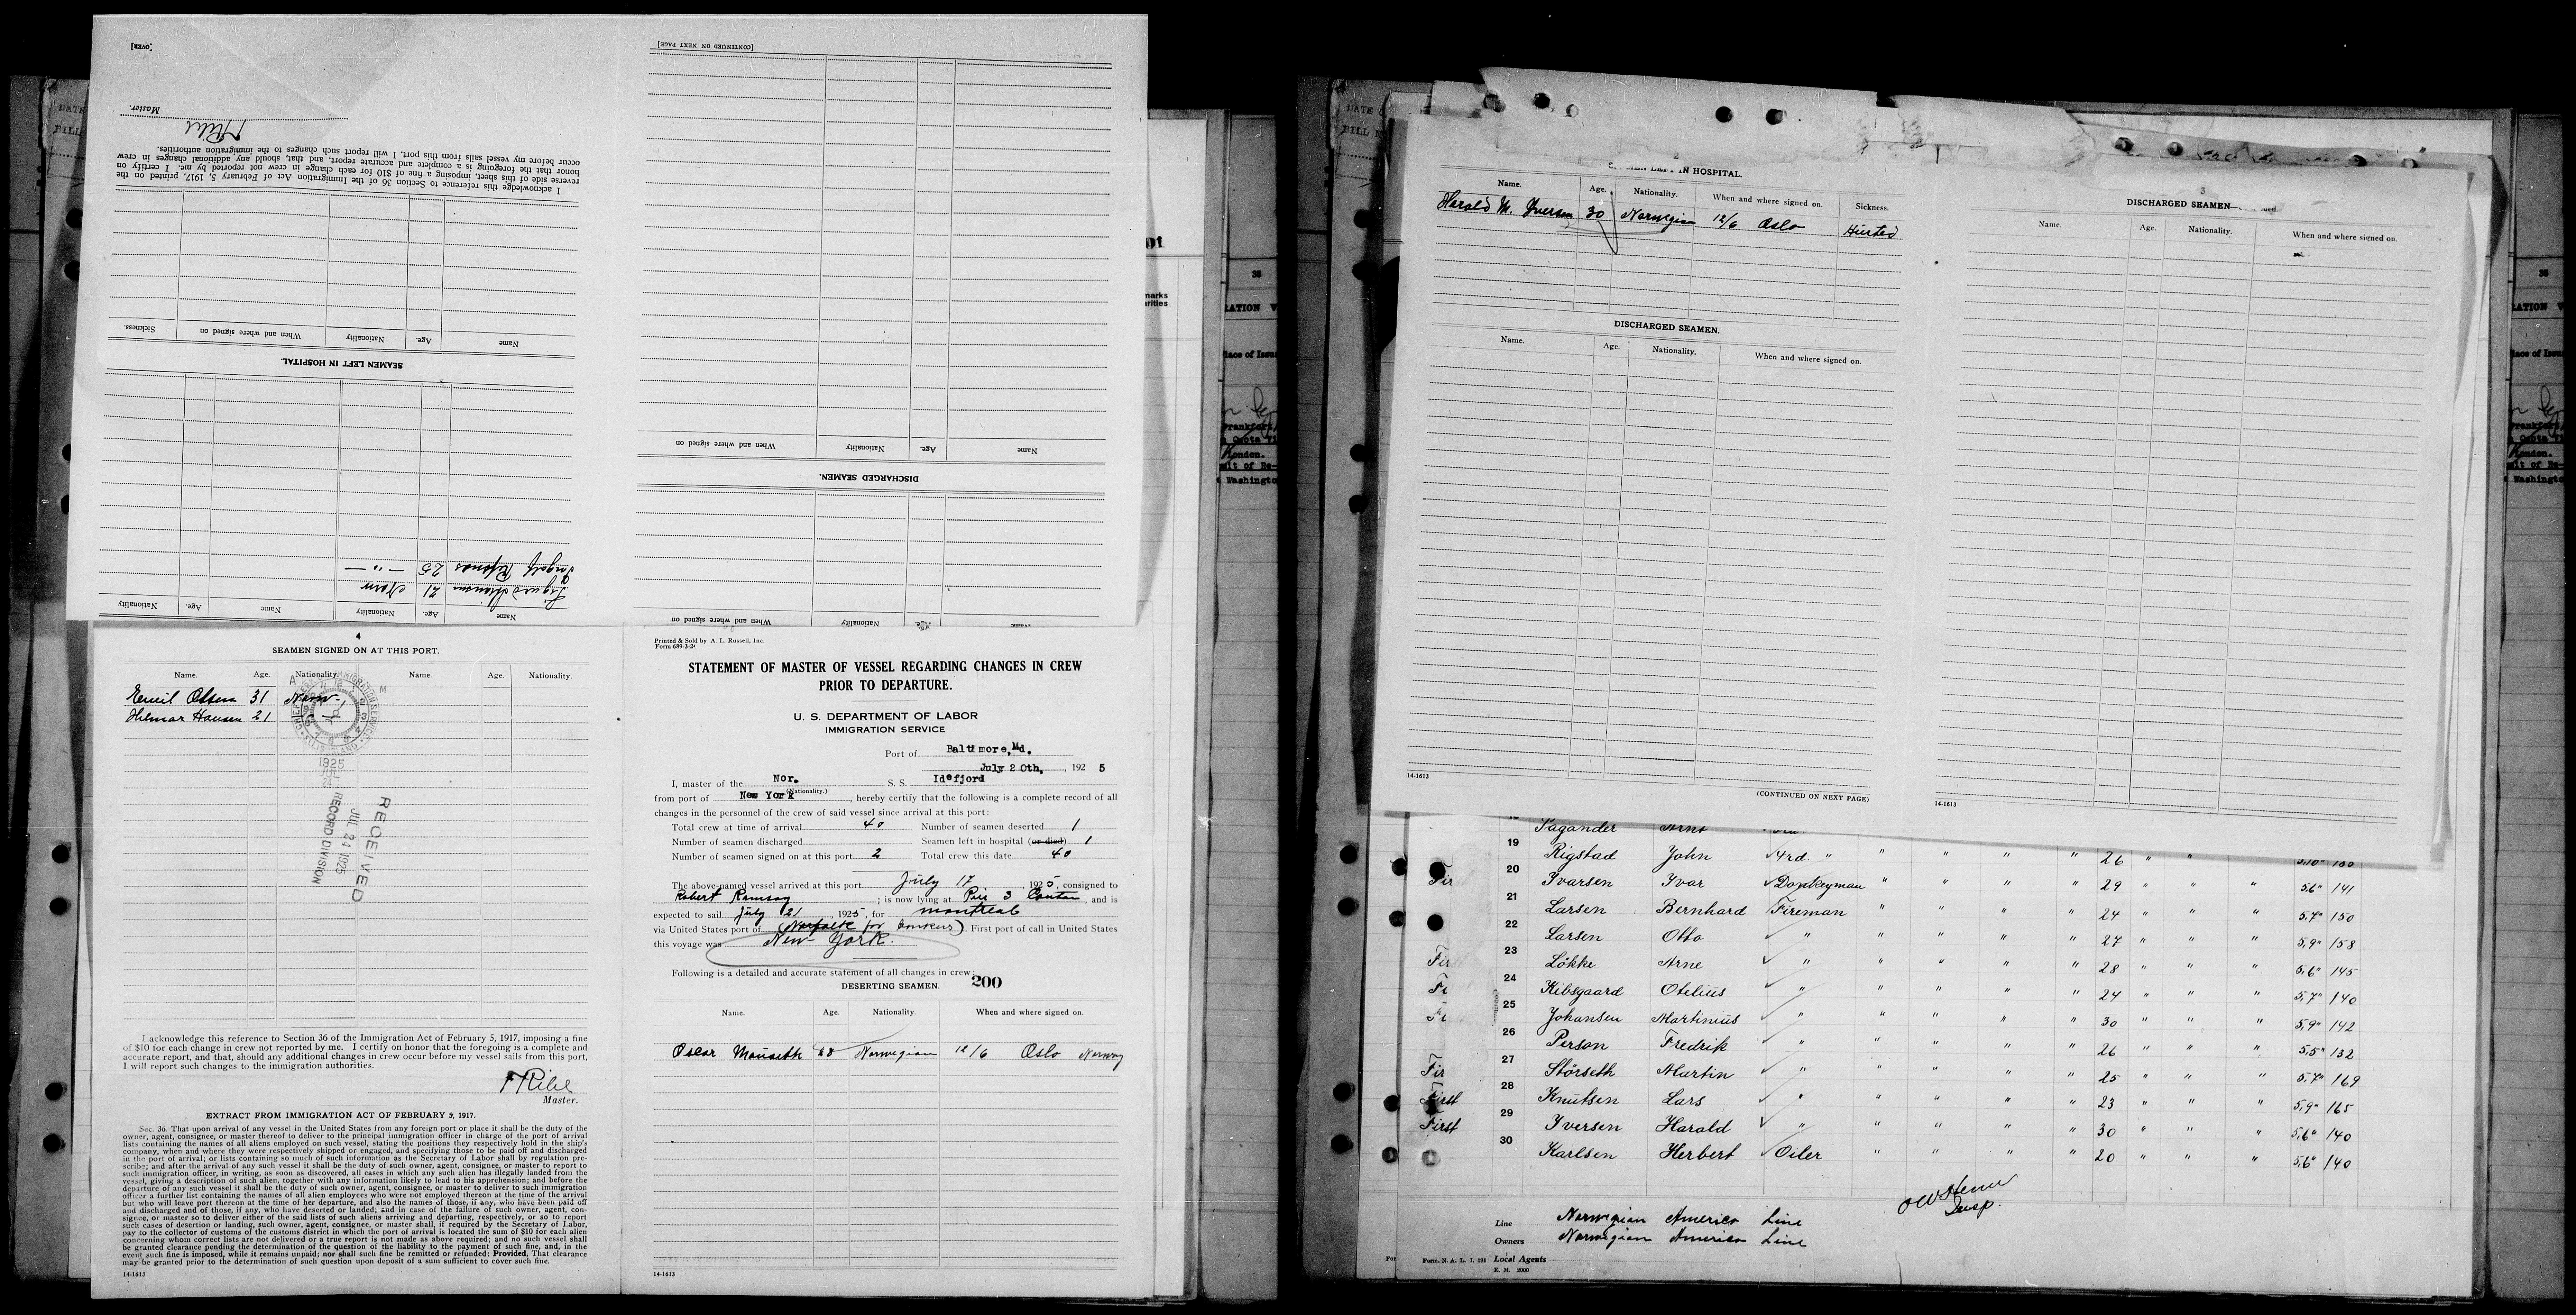 [OVER]
Master.
I acknowledge this reference to Section 36 of the Immigration Act of February 5, 1917, printed on the
reverse side of this sheet, imposing a fine of $10 for each change in crew not reported by me. I certify on
honor that the foregoing is a complete and accurate report, and that, should any additional changes in crew
occur before my vessel sails from this port, I will report such changes to the immigration authorities.
Name Age. Nationality When and where signed on Sickness.
SEAMEN LEFT IN HOSPITAL.
Hansen 21 Norw
25 — " —
Name Age. Nationality Name Age. Nationality
[CONTINUED ON NEXT PAGE]
Name Age. Nationality When and where signed on
DISCHARGED SEAMEN.
Age. Nationality When and where signed on
4
SEAMEN SIGNED ON AT THIS PORT.
Name. Age. Nationality. Name. Age. Nationality.
Emil Olsen 31 Norw
Hilmar Hansen 21
1925
JUL
24
RECORD DIVISION
JUL 24 1925
RECEIVED
I acknowledge this reference to Section 36 of the Immigration Act of February 5, 1917, imposing a fine
of $10 for each change in crew not reported by me. I certify on honor that the foregoing is a complete and
accurate report, and that, should any additional changes in crew occur before my vessel sails from this port,
I will report such changes to the immigration authorities.
Master.
EXTRACT FROM IMMIGRATION ACT OF FEBRUARY 5, 1917.
Sec. 36. That upon arrival of any vessel in the United States from any foreign port or place it shall be the duty of the
owner, agent, consignee, or master thereof to deliver to the principal immigration officer in charge of the port of arrival
lists containing the names of all aliens employed on such vessel, stating the positions they respectively hold in the ship's
company, when and where they were respectively shipped or engaged, and specifying those to be paid off and discharged
in the port of arrival; or lists containing so much of such information as the Secretary of Labor shall by regulation pre-
scribe; and after the arrival of any such vessel it shall be the duty of such owner, agent, consignee, or master to report to
such immigration officer, in writing, as soon as discovered, all cases in which any such alien has illegally landed from the
vessel, giving a description of such alien, together with any information likely to lead to his apprehension; and before the
departure of any such vessel it shall be the duty of such owner, agent, consignee, or master to deliver to such immigration
officer a further list containing the names of all alien employees who were not employed thereon at the time of the arrival
but who will leave port thereon at the time of her departure, and also the names of those, if any, who have been paid off
and discharged and of those, if any, who have deserted or landed; and in case of the failure of such owner, agent, con-
signee, or master so to deliver either of the said lists of such aliens arriving and departing, respectively, or so to report
such cases of desertion or landing, such owner, agent, consignee, or master shall, if required by the Secretary of Labor,
pay to the collector of customs of the customs district in which the port of arrival is located the sum of $10 for each alien
concerning whom correct lists are not delivered or a true report is not made as above required; and no such vessel shall
be granted clearance pending the determination of the question of the liability to the payment of such fine, and, in the
event such fine is imposed, while it remains unpaid; nor shall such fine be remitted or refunded: Provided, That clearance
may be granted prior to the determination of such question upon deposit of a sum sufficient to cover such fine.
14-1613
Printed & Sold by A. L. Russell, Inc.
Form 689-3-24
STATEMENT OF MASTER OF VESSEL REGARDING CHANGES IN CREW
PRIOR TO DEPARTURE.
U. S. DEPARTMENT OF LABOR
IMMIGRATION SERVICE
Port of Baltimore, Md.
July 20th, 192 5
I, master of the Nor. S. S. Idefjord
(Nationality.)
from port of New York, hereby certify that the following is a complete record of all
changes in the personnel of the crew of said vessel since arrival at this port:
Total crew at time of arrival 40 Number of seamen deserted 1
Number of seamen discharged Seamen left in hospital (or died) 1
Number of seamen signed on at this port 2 Total crew this date 40
The above-named vessel arrived at this port July 17, 1925, consigned to
Robert Ramsay; is now lying at Pier 3 Canton, and is
expected to sail July 21, 1925, for Montreal
via United States port of (Norfolk for bunkers). First port of call in United States
this voyage was New York.
Following is a detailed and accurate statement of all changes in crew:
DESERTING SEAMEN. 200
Name. Age. Nationality. When and where signed on.
Oscar Mauseth 20 Norwegian 12/6 Oslo Norway
14-1613
01
marks
35
RATION V
Place of Issu
Frankfort
Quota Vi
London.
mit of Re-
Washingto
DATE
FILL
2
IN HOSPITAL.
Name. Age. Nationality. When and where signed on. Sickness.
Harald M. Iversen 30 Norwegian 12/6 Oslo Hurted
DISCHARGED SEAMEN.
Name. Age. Nationality. When and where signed on.
14-1613
(CONTINUED ON NEXT PAGE)
3
DISCHARGED SEAMEN
Name. Age. Nationality. When and where signed on.
14-1613
Pagander Arne
19 Rigstad John 3rd. " " " " " 26 " " 5,10" 180
20 Ivarsen Ivar Donkeyman " " " " 29 " " " 5,6" 141
21 Larsen Bernhard Fireman " " " " 24 " " " 5,7" 150
22 Larsen Otto " " " " " 27 " " " 5,9" 158
23 Lökke Arne " " " " " 28 " " " 5,6" 145
24 Kibsgaard Otelius " " " " " 24 " " " 5,7" 140
25 Johansen Martinius " " " " " 30 " " " 5,9" 142
26 Person Fredrik " " " " " 26 " " " 5,5" 132
27 Störseth Martin " " " " " 25 " " " 5,7" 169
28 Knutsen Lars " " " " " 23 " " " 5,9" 165
29 Iversen Harald " " " " " 30 " " " 5,6" 140
30 Karlsen Herbert Oiler " " " " 20 " " " 5,6" 140
First
First
Insp.
Line Norwegian America Line
Owners Norwegian America Line
Form. N. A. L. I. 191 Local Agents
E. M. 2000
35
RATION V
Place of Issu
Frankfort
Quota Vi
London.
mit of Re-
Washingto